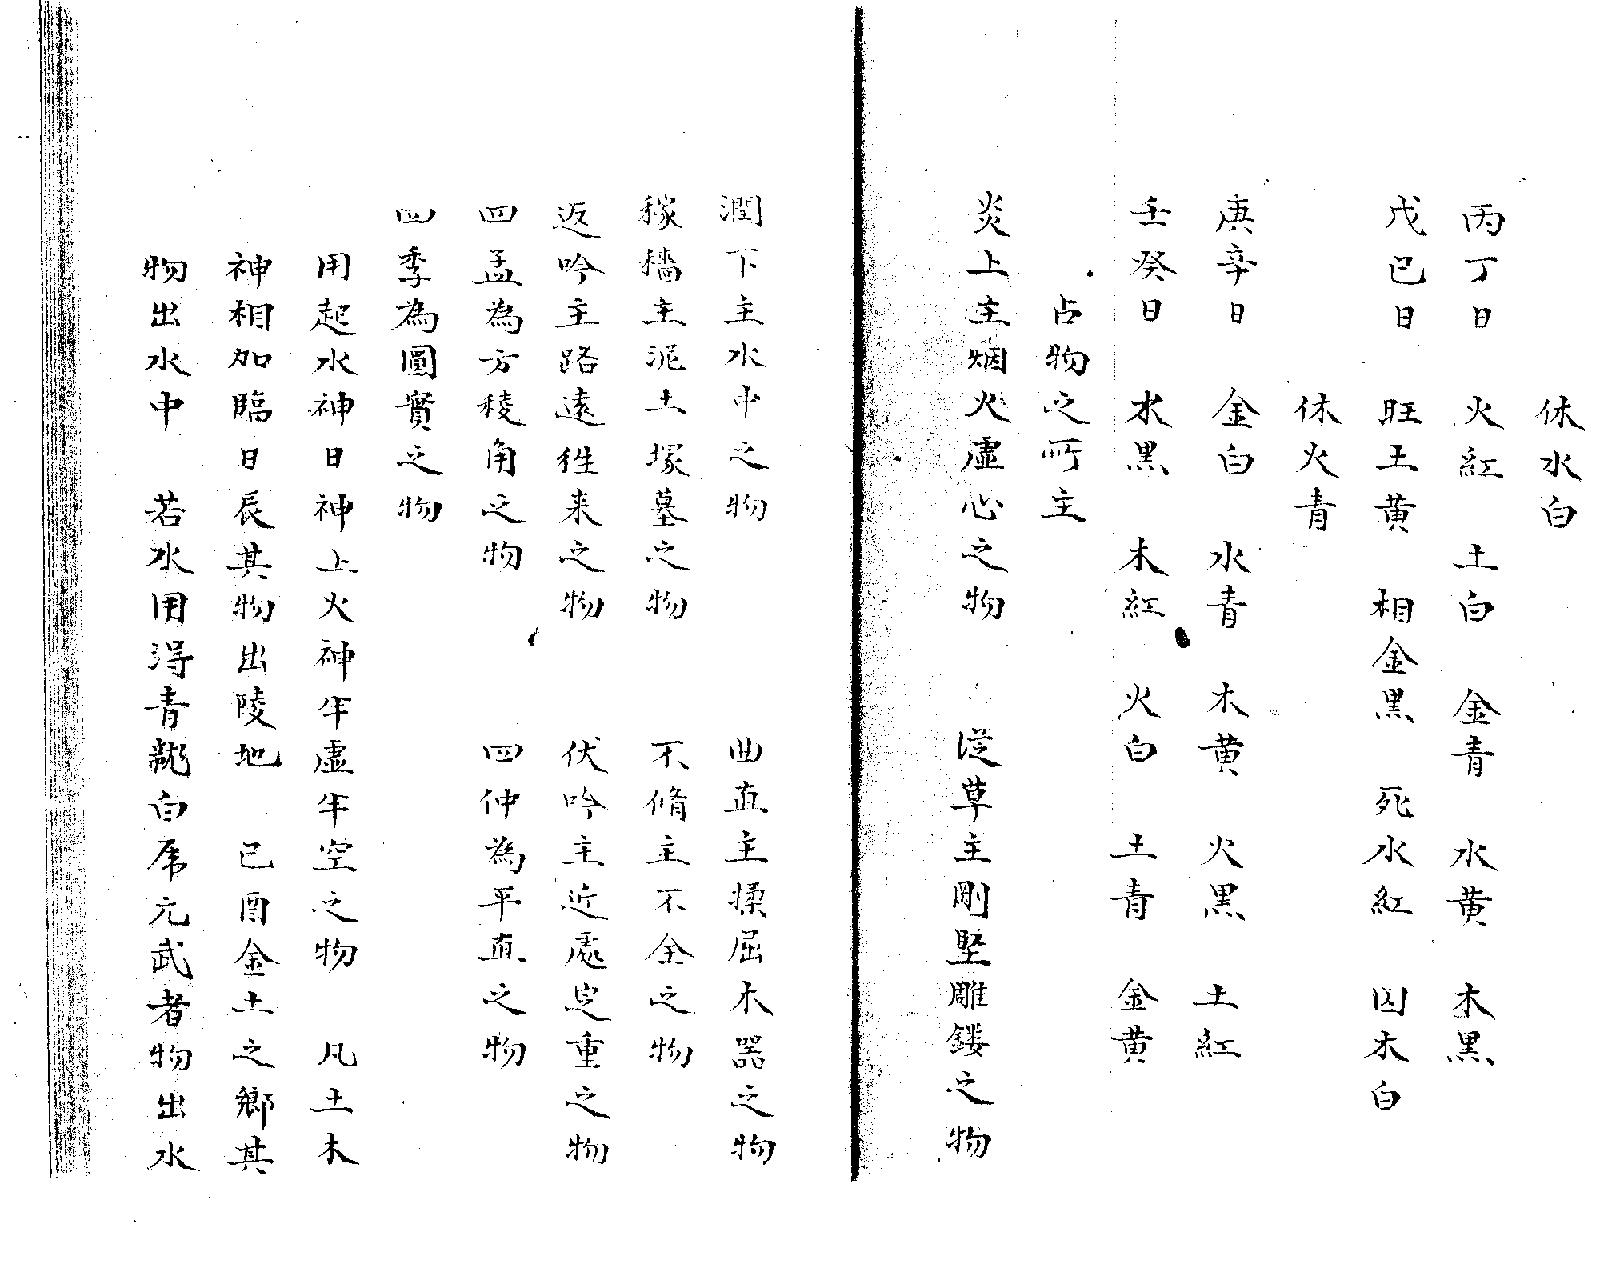 休水白
丙丁日　火紅　土白　金青　水黄　木黑
戊己日　旺王黄　相金黑　死水紅　囚木白
休火青
庚辛日　金白　水青　木黄　火黑　土紅
壬癸日　水黑　木紅　火白　土青　金黄
占物之所主
炎上主烟火虛心之物　從革主剛堅雕鏤之物
潤下主水中之物　曲直主揉屈木器之物
稼穡主泥土塚墓之物　不脩主不全之物
返吟主路遠徃来之物　伏吟主近處定重之物
四孟為方稜角之物　四仲為平直之物
四季為圓實之物
用起水神日神上火神半虛半空之物　凡土木
神相加臨日辰其物出陵地　己酉金土之鄉其
物出水中　若水用得青龍白虎元武者物出水